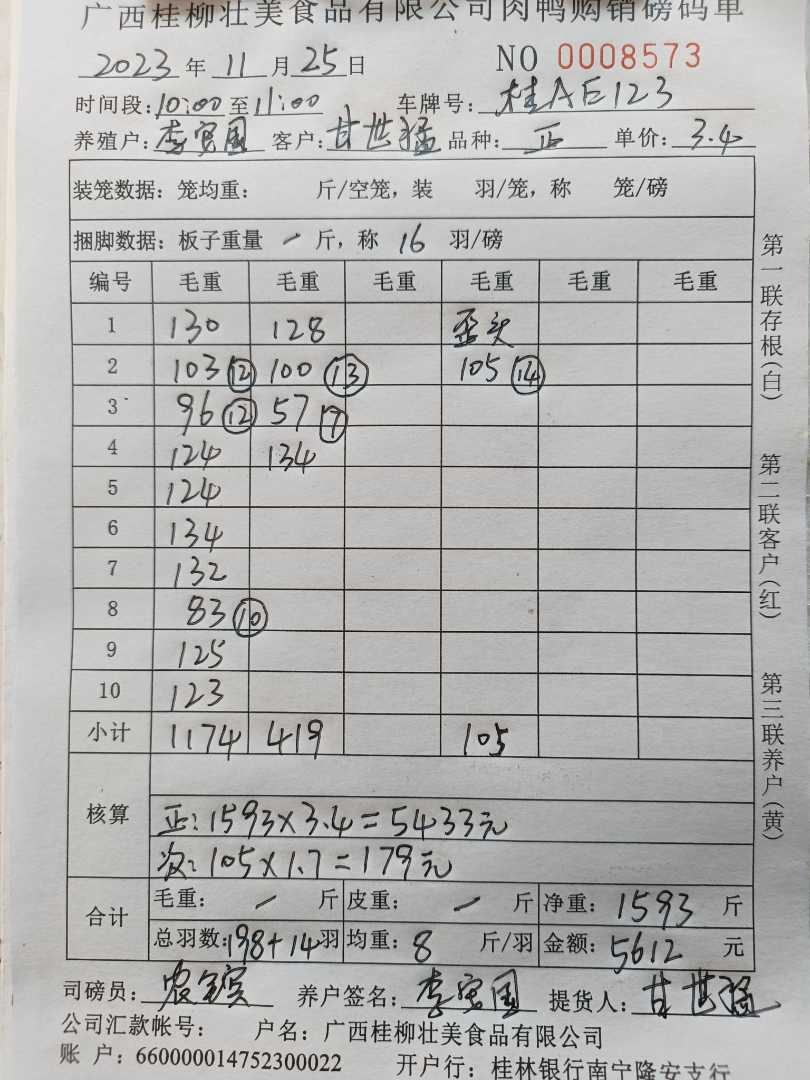 广西桂柳壮美食品有限公司肉鸭购销磅码单
2023年 11月25日 NO 0008573
时间段:10:00至11:00 车牌号:桂AE123
养殖户:李宾国 客户:甘世猛 品种:正 单价:3.4
装笼数据:笼均重: 斤/空笼,装 羽/笼,称 笼/磅
捆脚数据:板子重量 - 斤,称 16 羽/磅
编号 毛重 毛重 毛重 毛重 毛重 毛重
1 130 128 歪头
2 103⑫ 100⑬ 105⑭
3 96⑫ 57⑦
4 124 134
5 124
6 134
7 132
8 83⑩
9 125
10 123
小计 1174 419 105
核算
正:1593×3.4=5433元
次:105×1.7=179元
合计 毛重: - 斤 皮重: - 斤 净重:1593斤
总羽数:198+14羽 均重:8 斤/羽 金额:5612 元
司磅员: 养户签名:李宾国 提货人:甘世猛
公司汇款帐号: 户名:广西桂柳壮美食品有限公司
账 户:660000014752300022 开户行:桂林银行南宁隆安支行
第一联存根(白)
第二联客户(红)
第三联养户(黄)